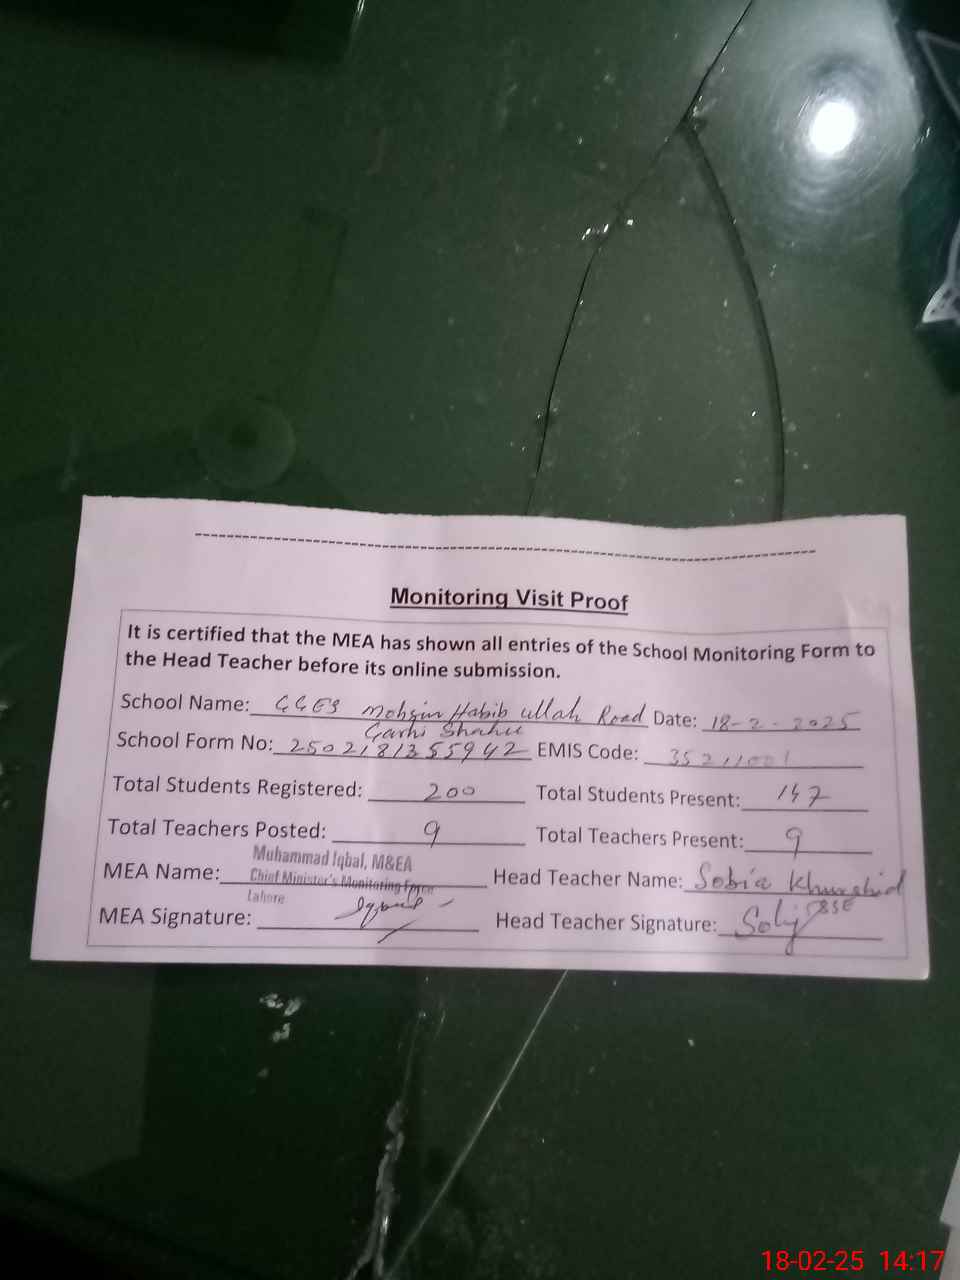 Monitoring Visit Proof
It is certified that the MEA has shown all entries of the School Monitoring Form to
the Head Teacher before its online submission.
School Name: GGES Mohsin Habib ullah Road Date: 18-2-2025
Garhi Shahu
School Form No: 250218135 5942 EMIS Code: 35211001
Total Students Registered: 200 Total Students Present: 147
Total Teachers Posted: 9 Total Teachers Present: 9
Muhammad Iqbal, M&EA
MEA Name: Chief Minister's Monitoring Force Head Teacher Name: Sobia Khurshid
Lahore
MEA Signature: Iqbal Head Teacher Signature:
18-02-25 14:17